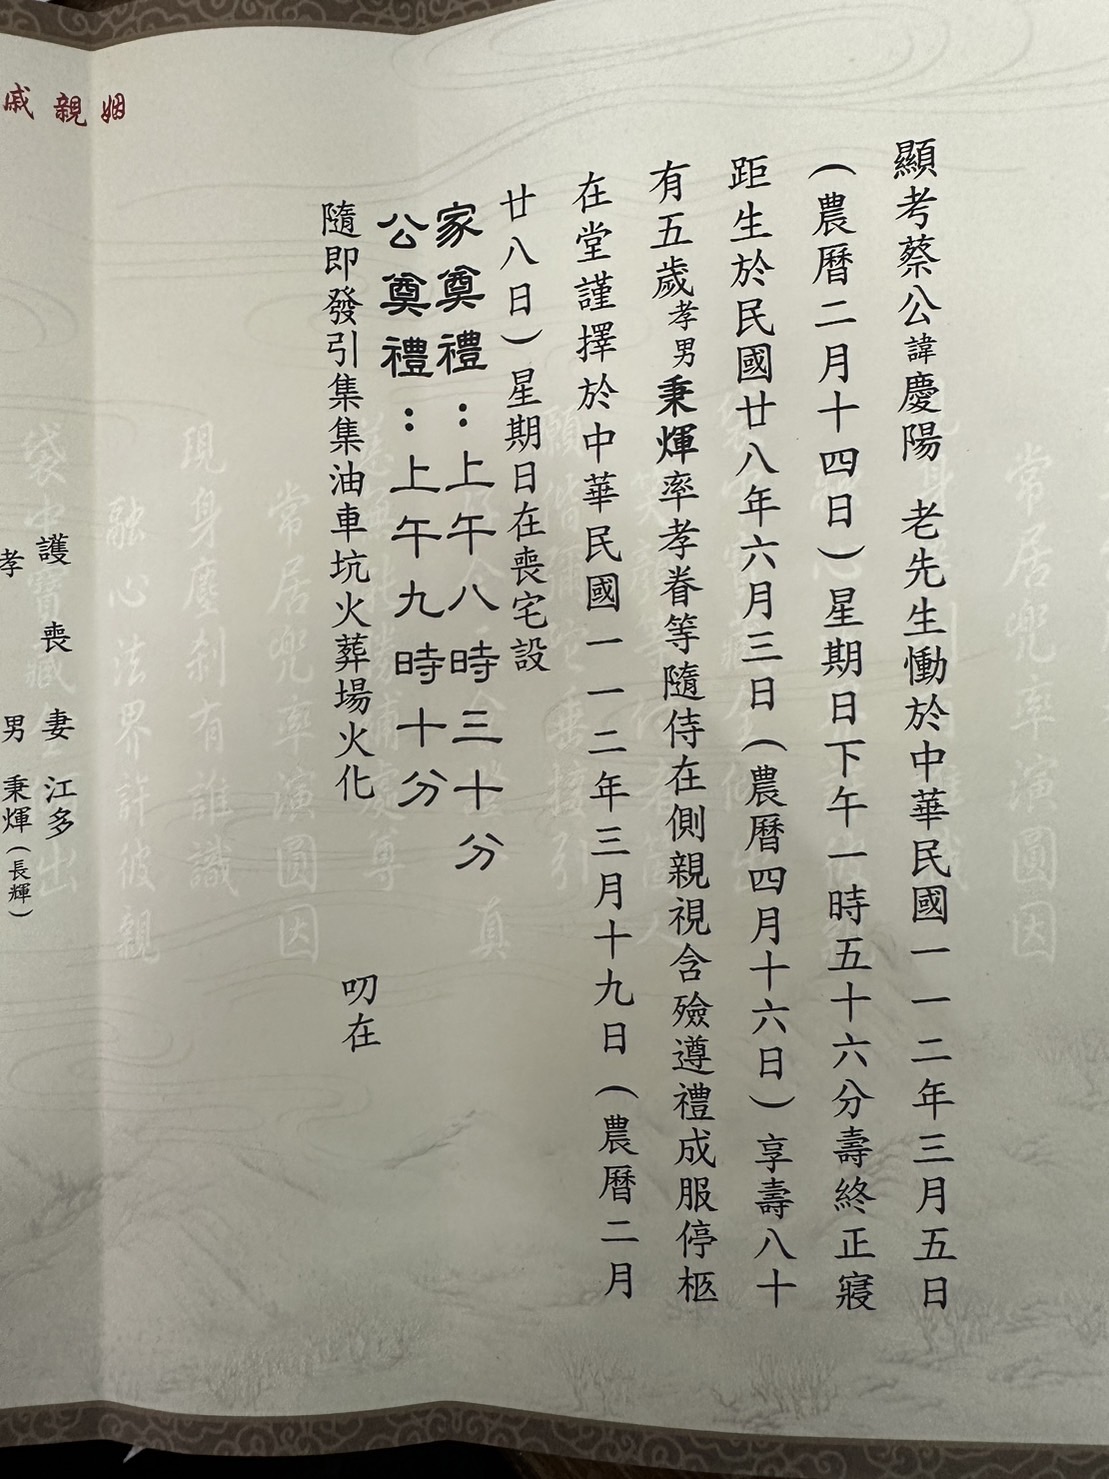 顯考蔡公諱慶陽　老先生慟於中華民國一一二年三月五日
（農曆二月十四日）星期日下午一時五十六分壽終正寢
距生於民國廿八年六月三日（農曆四月十六日）享壽八十
有五歲孝男秉煇率孝眷等隨侍在側親視含殮遵禮成服停柩
在堂謹擇於中華民國一一二年三月十九日（農曆二月
廿八日）星期日在喪宅設
家奠禮：上午八時三十分
公奠禮：上午九時十分
隨即發引集集油車坑火葬場火化
叨在
姻親戚
護喪妻 江多
孝男 秉煇（長輝）
常居兜率演圓因
現身塵剎有誰識
融心法界許彼親